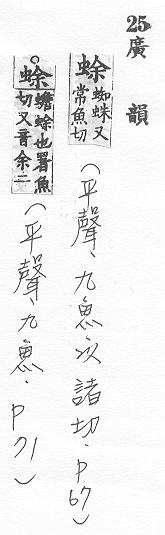 25 廣韻
蜍蜘蛛又常魚切(平聲、九魚次諸切.P67)
蜍蟾蜍也署魚切又音余二(平聲九魚.P71)